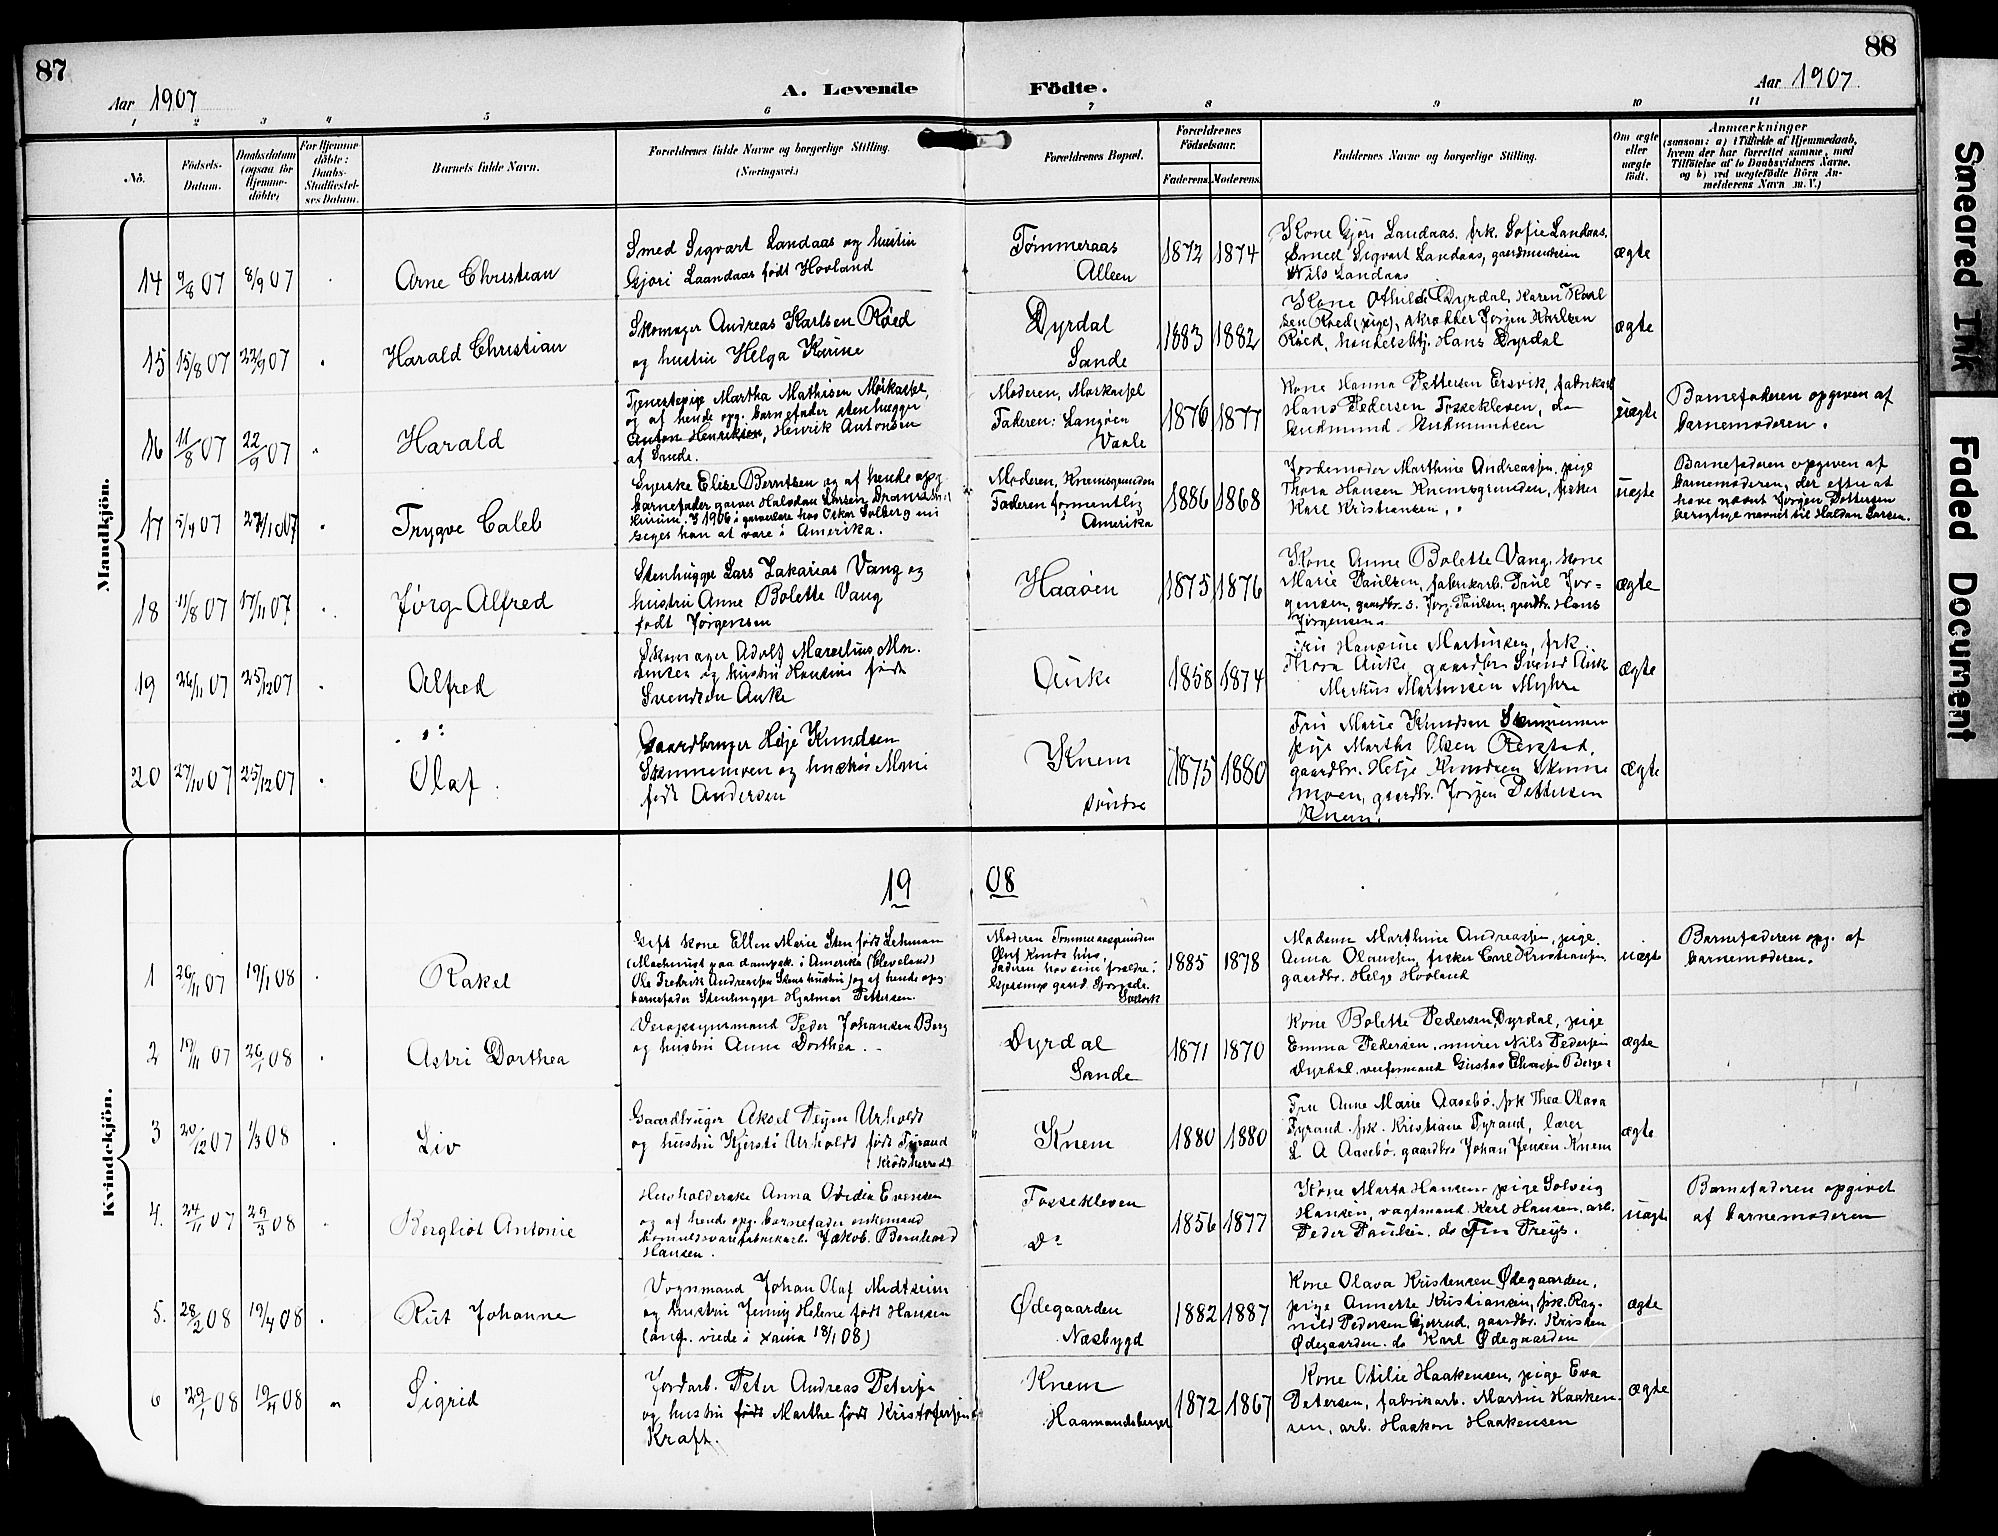 87
88
Aar 1907
A. Levende Födte.
Aar 1907
1 2 3 4 5 6 7 8 9 10 11
No.
Födsels-Datum.
Daabsdatum (ogsaa for Hjemme-döbte)
For Hjemme-döbte: Daabs-Stadfæstel-ses Datum.
Barnets fulde Navn.
Forældrenes fulde Navne og borgerlige Stilling.
(Næringsvei.)
Forældrenes Bopæl.
Forældrenes Födselsaar.
Faderens. Moderens.
Faddernes Navne og borgerlige Stilling.
Om ægte eller uægte födt.
Anmærkninger
(saasom: a) i Tilfælde af Hjemmedaab,
hvem der har forrettet samme, med
Tilföielse af to Daabsvidners Navne.
og b) ved uægtefödte Börn An-
melderens Navn m. V.)
Mandkjön.
14 9/8 07 8/9 07 Arne Christian
Smed Sigvart Landaas og hustru
Gjøri Laandaas født Hovland
Tømmeraas
Alleen
1872 1874
Kone Gjøri Landaas, frk. Sofie Landaas.
Smed Sigvart Landaas, gaardmusiken
Nils Landaas
ægte
15 15/8 07 22/9 07 Harald Christian
Skomager Andreas Karlsen Røed
og hustru Helga Karine
Dyrdal
Sande
1883 1882
Kone Othilde Dyrdal, Karen Karl
sen Røed (pige), skrædder Jørgen Karlsen
Røed, handelsbtj. Hans Dyrdal
ægte
16 11/8 07 22/9 07 Harald
Tjenestepige Martha Mathisen Mørkassel,
og af hende opg. barnefader stenhugger
Anton Henriksen, Henrik Antonsen
af Sande.
Moderen, Mørkassel
Faderen: Langøen
Vaale
1876 1877
Kone Hanna Pettersen Ersvik, fabrikarb
Hans Pedersen Fossekleven, do
Gudmund Gudmundsen
uægte
Barnefaderen opgiven af
barnemoderen.
17 5/9 07 27/10 07 Trygve Caleb
Syerske Elise Berntsen og af hende opg
barnefader garver Halvdan Larsen, Drammen
I 1906 i garverlære hos Oskar Solberg nu
siges han at være i Amerika.
Moderen, Knemsgrunden
Faderen formentlig
i Amerika
1886 1868
Jordemoder Marthine Andreassen, pige
Thora Hansen Knemsgrunden, fisker
Karl Kristiansen.
uægte
Barnefaderen opgiven af
barnemoderen, der efter at
have nævnt Jørgen Pettersen
berigtige navnet til Haldan Larsen.
18 11/8 07 17/11 07 Jørg Alfred
Stenhugger Lars Zakarias Vang og
hustru Anne Bolette Vang
født Jørgensen
Haaøen
1875 1876
Kone Anne Bolette Vang, kone
Marie Paulsen, fabrikarb. Paul Jør-
gensen, gaardbr. s. Jørg. Paulsen, gaardbr. Hans
Jørgensen.
ægte
19 26/11 07 25/12 07 Alfred
Skomager Adolf Marcelius Mar-
tinsen og hustru Hansine født
Svendsen Auke
Auke
1858 1874
Fru Hansine Martinsen, frk.
Thora Auke, gaardbr. Svend Auke
Markus Martinsen Myhre
ægte
20 27/10 07 25/12 07 Olaf
Gaardbruger Helje Knudsen
Skinnemoen og hustru Marie
født Andersen
Knem
søndre
1875 1880
Fru Marie Knudsen Skinnemoen
pige Martha Olsen Revstad,
gaardbr. Helje Knudsen Skinne
moen, gaardbr. Jørgen Pettersen
Knem.
ægte
Kvindekjön.
19 08
1 29/11 07 19/1 08 Rakel
Gift kone Ellen Marie Sten født Lehman
(Machinist paa dampsk. i Amerika (Cleveland)
Ole Fredrik Andreassen Stens hustru) og af hende opg
barnefader Stenhugger Hjalmar Pettersen.
Moderen Tømmeraasgrunden
Oluf Knuts hus.
Faderen hos sine forældre:
1885 1878
Madame Marthine Andreassen, pige.
Anna Olausen, fisker Carl Kristiansen,
gaardbr. Helge Hovland
uægte
Barnefaderen opg. af
barnemoderen.
2 19/11 07 26/1 08 Astri Dorthea
Veiopsynsmand Peder Johansen Berg
og hustru Anna Dorthea.
Dyrdal
Sande
1871 1870
Kone Bolette Pedersen Dyrdal, pige
Emma Pedersen, murer Nils Pedersen
Dyrdal.
ægte
3 20/12 07 1/3 08 Liv
Gaardbruger Aksel Deijen Urholdt
og hustru Kjersti Urholdt født Tyrand
Krødsherred
Knem
1880 1880
Fru Anne Marie Aasebø, frk Thea Olava
Tyrand, frk. Kristiane Tyrand, lærer
L. A Aasebø, gaardbr Johan Jensen Knem
ægte
4. 24/11 07 29/3 08 Bergliot Antonie
Husholderske Anna Ovidia Evensen
og af hende opg. barnefader enkemand
Jakob Bernhard
Hansen.
Fossekleven
Do
1856 1877
Kone Marta Hansen, pige Solveig
Hansen, vagtmand Karl Hansen, arb.
Peder Paulsen, do
uægte
Barnefaderen opgivet
af barnemoderen
5. 28/2 08 19/4 08 Rut Johanne
Vognmand, Johan Olaf Midtseien
og hustru Jenny Helene født Hansen
(ang. viede i 18/1 08)
Ødegaarden
Næsbygd
1882 1887
Kone Olava Kristensen Ødegaarden,
pige Annette Kristiansen, frk. Rag-
nild Pedersen Gjerrud, gaardbr. Kristen
Ødegaarden. do Karl Ødegaarden
ægte
6 29/1 08 19/4 08 Sigrid
Jordarb. Peter Andreas Petersen
og hustru født Marthe født Kristofersen
Kraft.
Knem
Haamandsberget
1872 1867
Kone Otilie Haakensen, pige Eva
Petersen, fabrikarb. Martin Haaken-
sen, arb. Haakon Haakensen
ægte
Smeared Ink
Faded Document